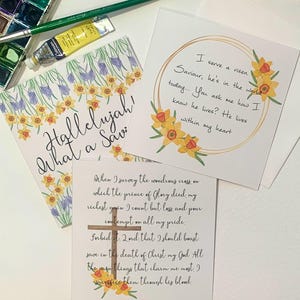 Hallelujah!
What a Sav
I serve a risen
Saviour, he's in the w
today. You ask me how I
know he lives? He lives
within my heart
When I survey the wondrous cross on
which the prince of Glory died, my
richest gain I count but loss and pour
contempt on all my pride.
Forbid it, Lord that I should boast
save in the death of Christ my God. All
the vain things that charm me most, I
sacrifice them through his blood.